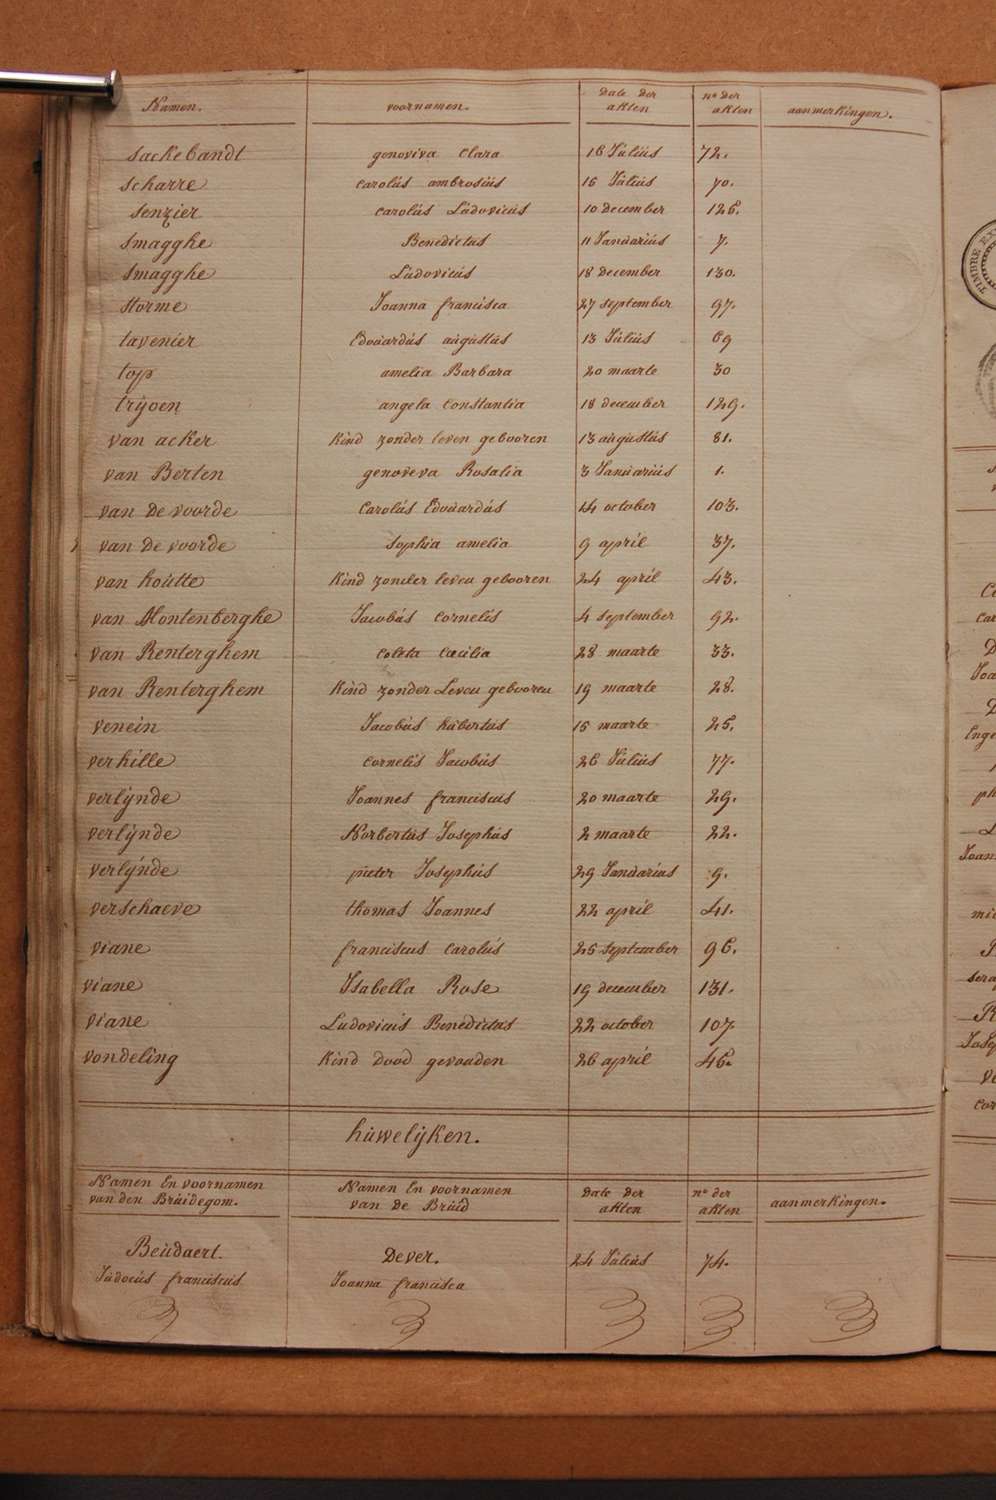 Namen. voornamen. Date der akten nº der akten aanmerkingen.
sackebandt genoviva Clara 16 Julius 72.
scharre carolus ambrosius 16 Julius 70.
senzier carolus Ludovicus 10 december 126.
smagghe Benedictus 11 Januarius 7.
smagghe Ludovicus 18 december 130.
storme Joanna francisca 27 september 97.
tavenier Edouardus augustus 13 Julius 69
top amelia Barbara 20 maarte 30
trijoen angela constantia 18 december 129.
van acker kind zonder leven gebooren 13 augustus 81.
van Berten genoveva Rosalia 3 Januarius 1.
van De voorde Carolus Edouardus 24 october 103.
van De voorde sophia amelia 9 april 37.
van houtte kind zonder leven gebooren 24 april 43.
van Hontenberghe Jacobus cornelis 4 september 92.
van Renterghem coleta Cæcilia 28 maarte 33.
van Renterghem kind zonder Leven gebooren 19 maarte 28.
venein Jacobus hubertus 16 maarte 25.
verhille cornelis Jacobus 26 Julius 77.
verlijnde Joannes franciscus 20 maarte 29.
verlijnde Norbertus Josephus 2 maarte 22.
verlijnde pieter Josephus 29 Januarius 9.
verschaeve thomas Joannes 22 april 41.
viane franciscus carolus 26 september 96.
viane Isabella Rose 19 december 131.
viane Ludovicus Benedictus 22 october 107
vondeling kind Dood gevonden 26 april 46.
huwelijken.
Namen En voornamen van den Bruidegom. Namen En voornamen van De Bruid Date der akten nº der akten aanmerkingen.
Beudaert. Dever. 24 Julius 74.
Judocus franciscus Joanna francisca